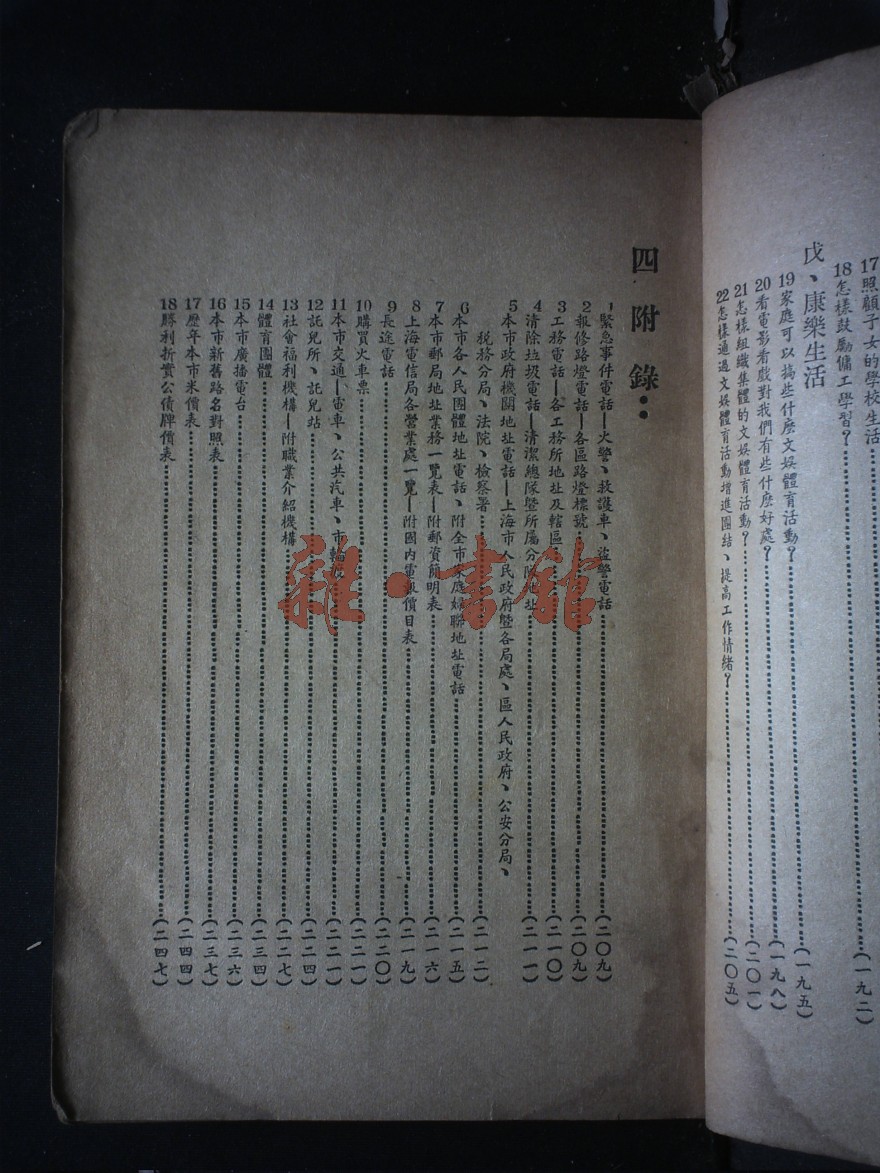 17照顧子女的學校生活……(一九二)
18怎樣鼓勵傭工學習?……(一九五)
戊、康樂生活
19家庭可以搞些什麽文娛體育活動?……(一九八)
20看電影看戲對我們有些什麽好處?……(二〇一)
21怎樣組織集體的文娛體育活動?
22怎樣通過文娛體育活動增進團結、提高工作情緒?……(二〇五)
四 附錄:
1緊急事件電話—火警、救護車、盜警電話……(二〇九)
2報修路燈電話—各區路燈標號……(二〇九)
3工務電話—各工務所地址及轄區……(二一〇)
4清除垃圾電話—清潔總隊暨所屬分隊地址……(二一一)
5本市政府機関地址電話—上海市人民政府暨各局處、區人民政府、公安分局、
稅務分局、法院、檢察署……(二一二)
6本市各人民團體地址電話、附全市家庭婦聯地址電話……(二一五)
7本市郵局地址業務一覽表—附郵資簡明表……(二一六)
8上海電信局各營業處一覽—附國内電報價目表……(二一九)
9長途電話……(二二〇)
10購買火車票……(二二一)
11本市交通—電車、公共汽車、市輪渡……(二二一)
12託兒所、託兒站……(二二四)
13社會福利機構—附職業介紹機構……(二二七)
14體育團體……(二三四)
15本市廣播電台……(二三六)
16本市新舊路名對照表……(二三七)
17歷年本市米價表……(二四四)
18勝利折實公債牌價表……(二四七)
雜·書館